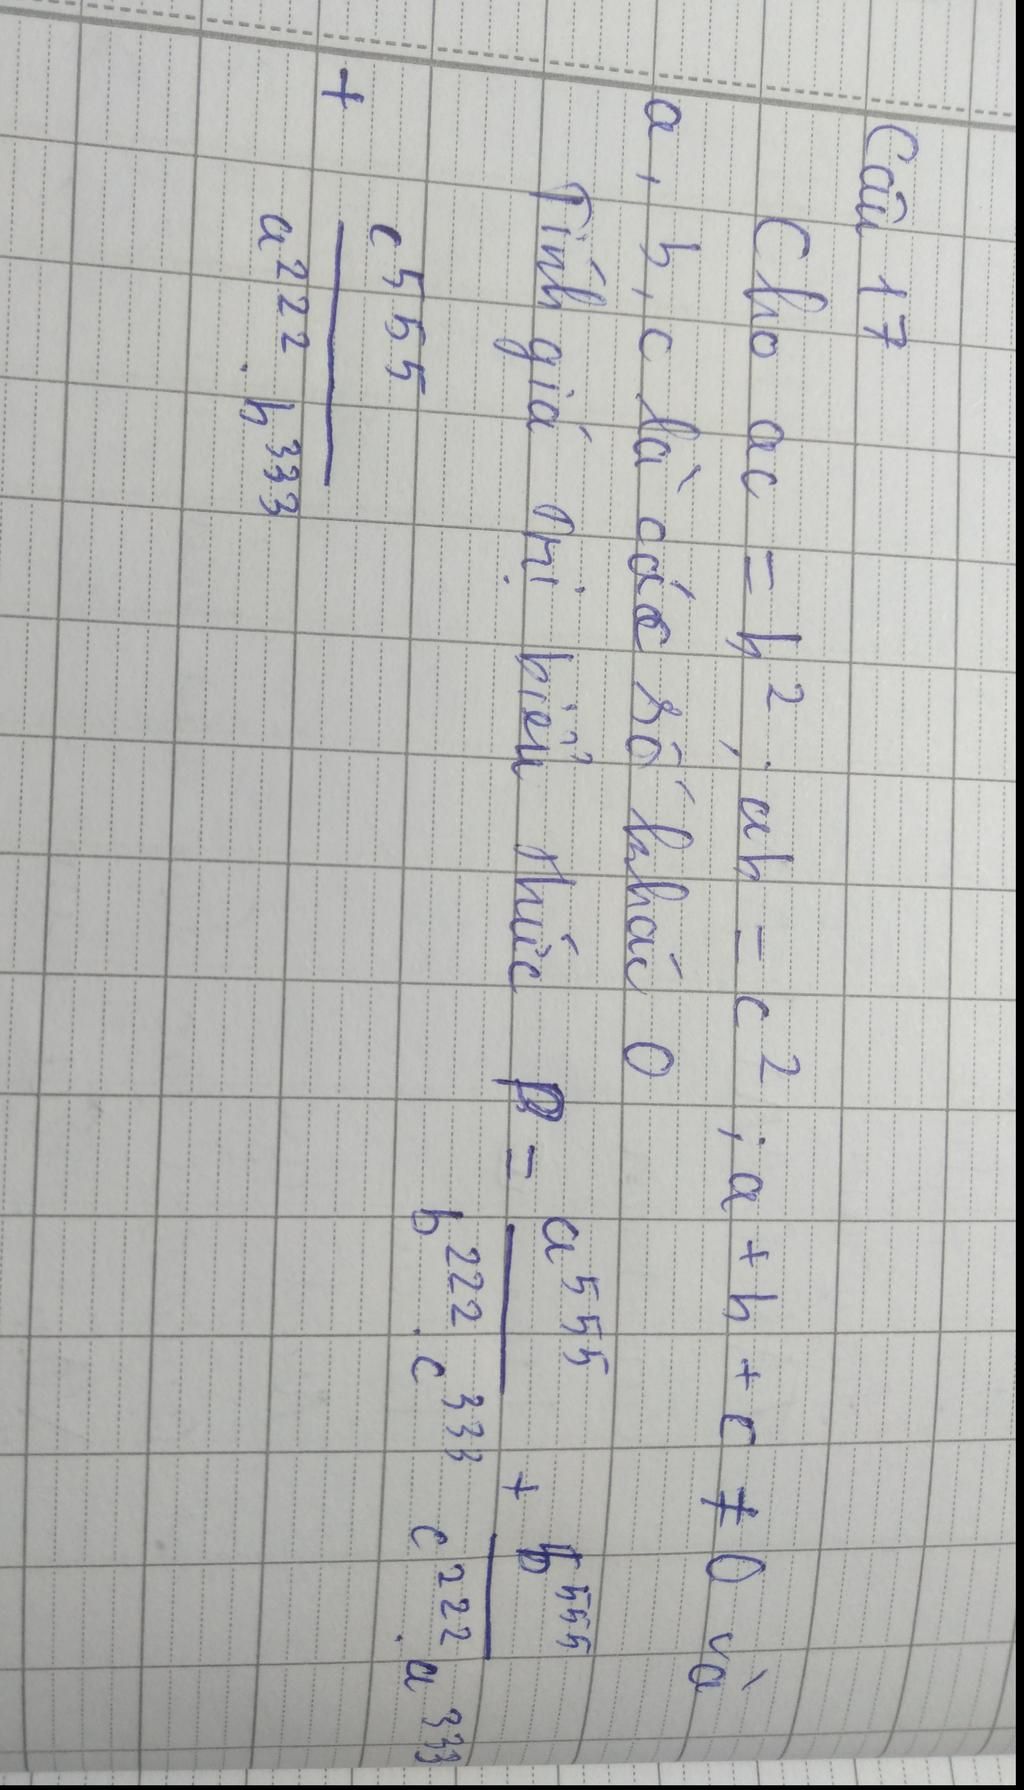 Câu 17
Cho ac = b², ab = c² ; a + b + c ≠ 0 và
a, b, c là các số khác 0
Tính giá trị biểu thức P = a⁵⁵⁵ / b²²² . c³³³ + b⁵⁵⁵ / c²²² . a³³³
+ c⁵⁵⁵ / a²²² . b³³³